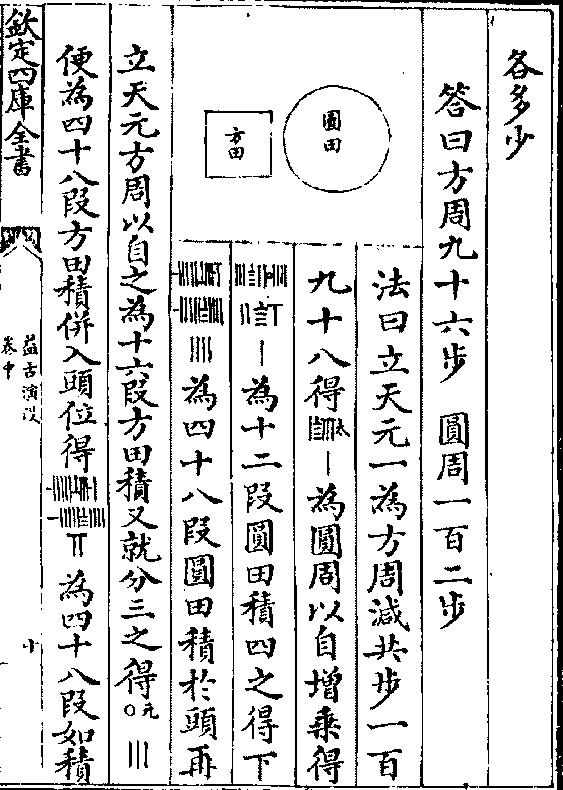 各多少
答曰方周九十六步　圓周一百二步
圓田
方田
法曰立天元一為方周減共步一百
九十八得太　為圓周以自增乘得
為十二段圓田積四之得下
為四十八段圓田積於頭再
立天元方周以自之為十六段方田積又就分三之得〇元
便為四十八段方田積併入頭位得　為四十八段如積
欽定四庫全書
益古演段
卷中
十